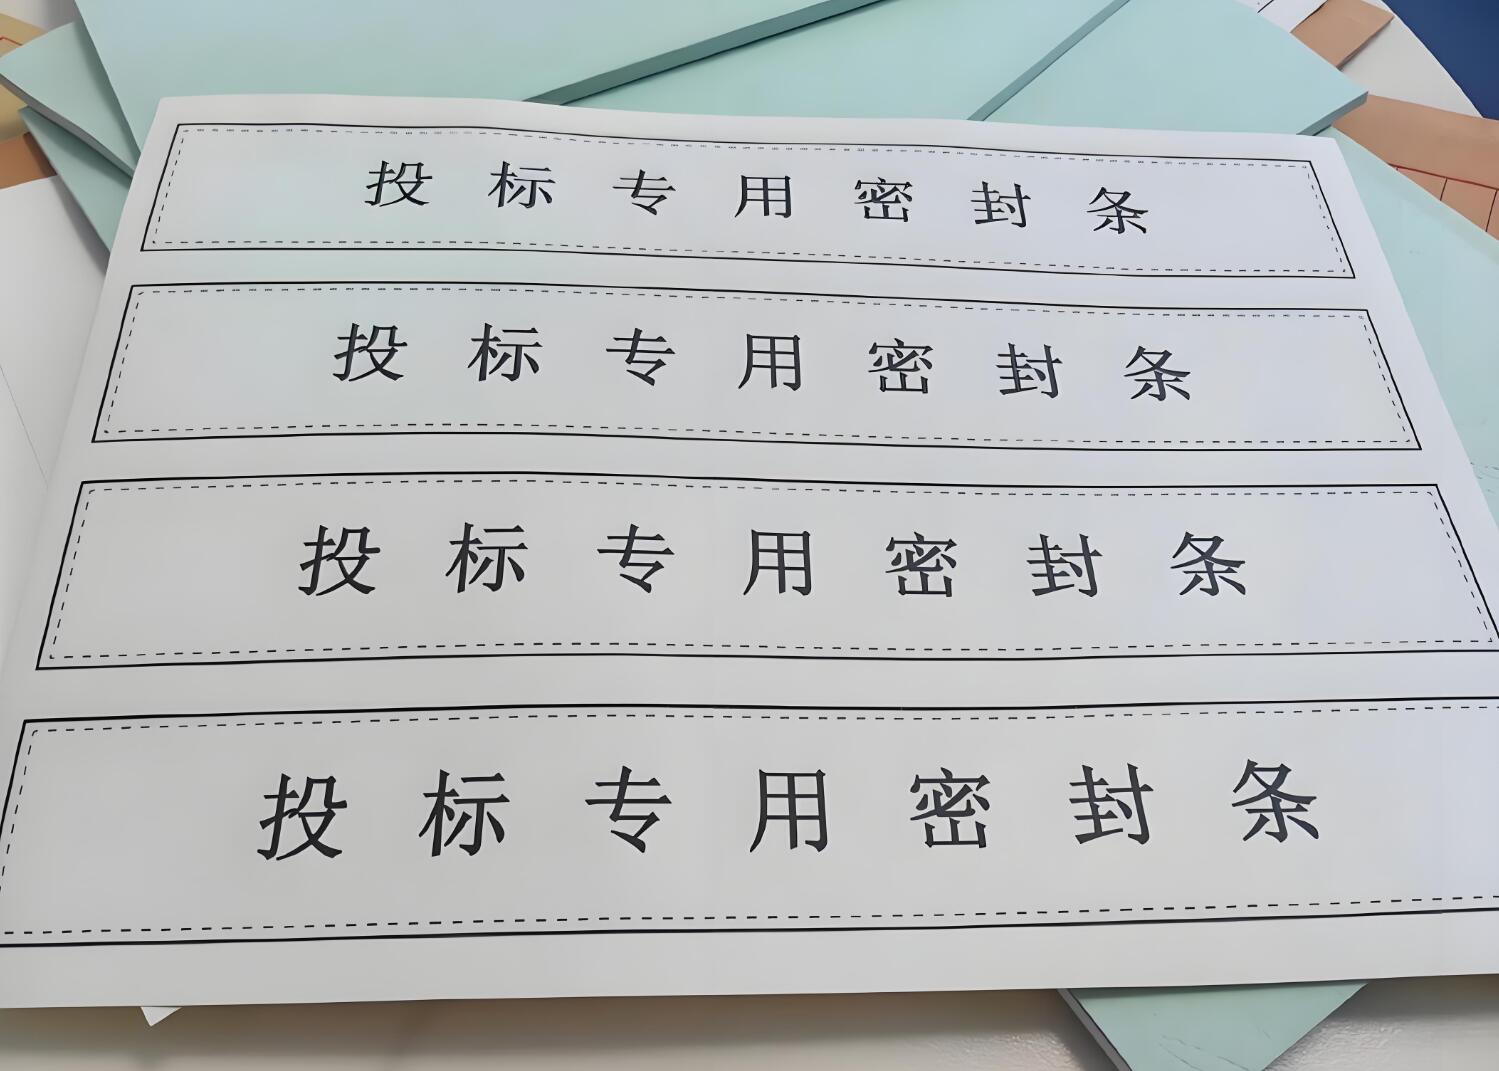 投标专用密封条
投标专用密封条
投标专用密封条
投标专用密封条